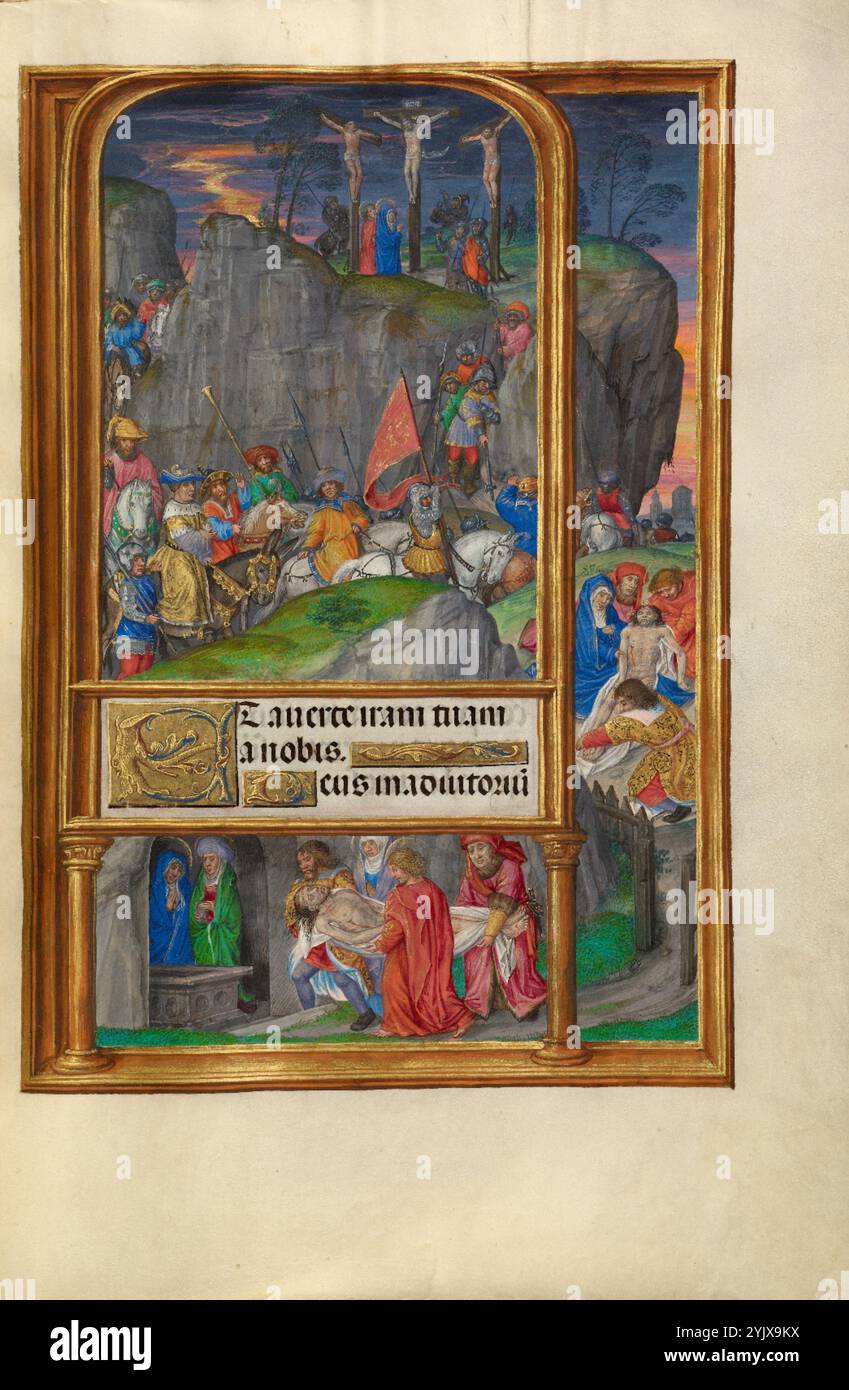 ET auerte iram tuam
a nobis.
Deus in adiutoriū
alamy
Image ID: 2YJX9KX
www.alamy.com